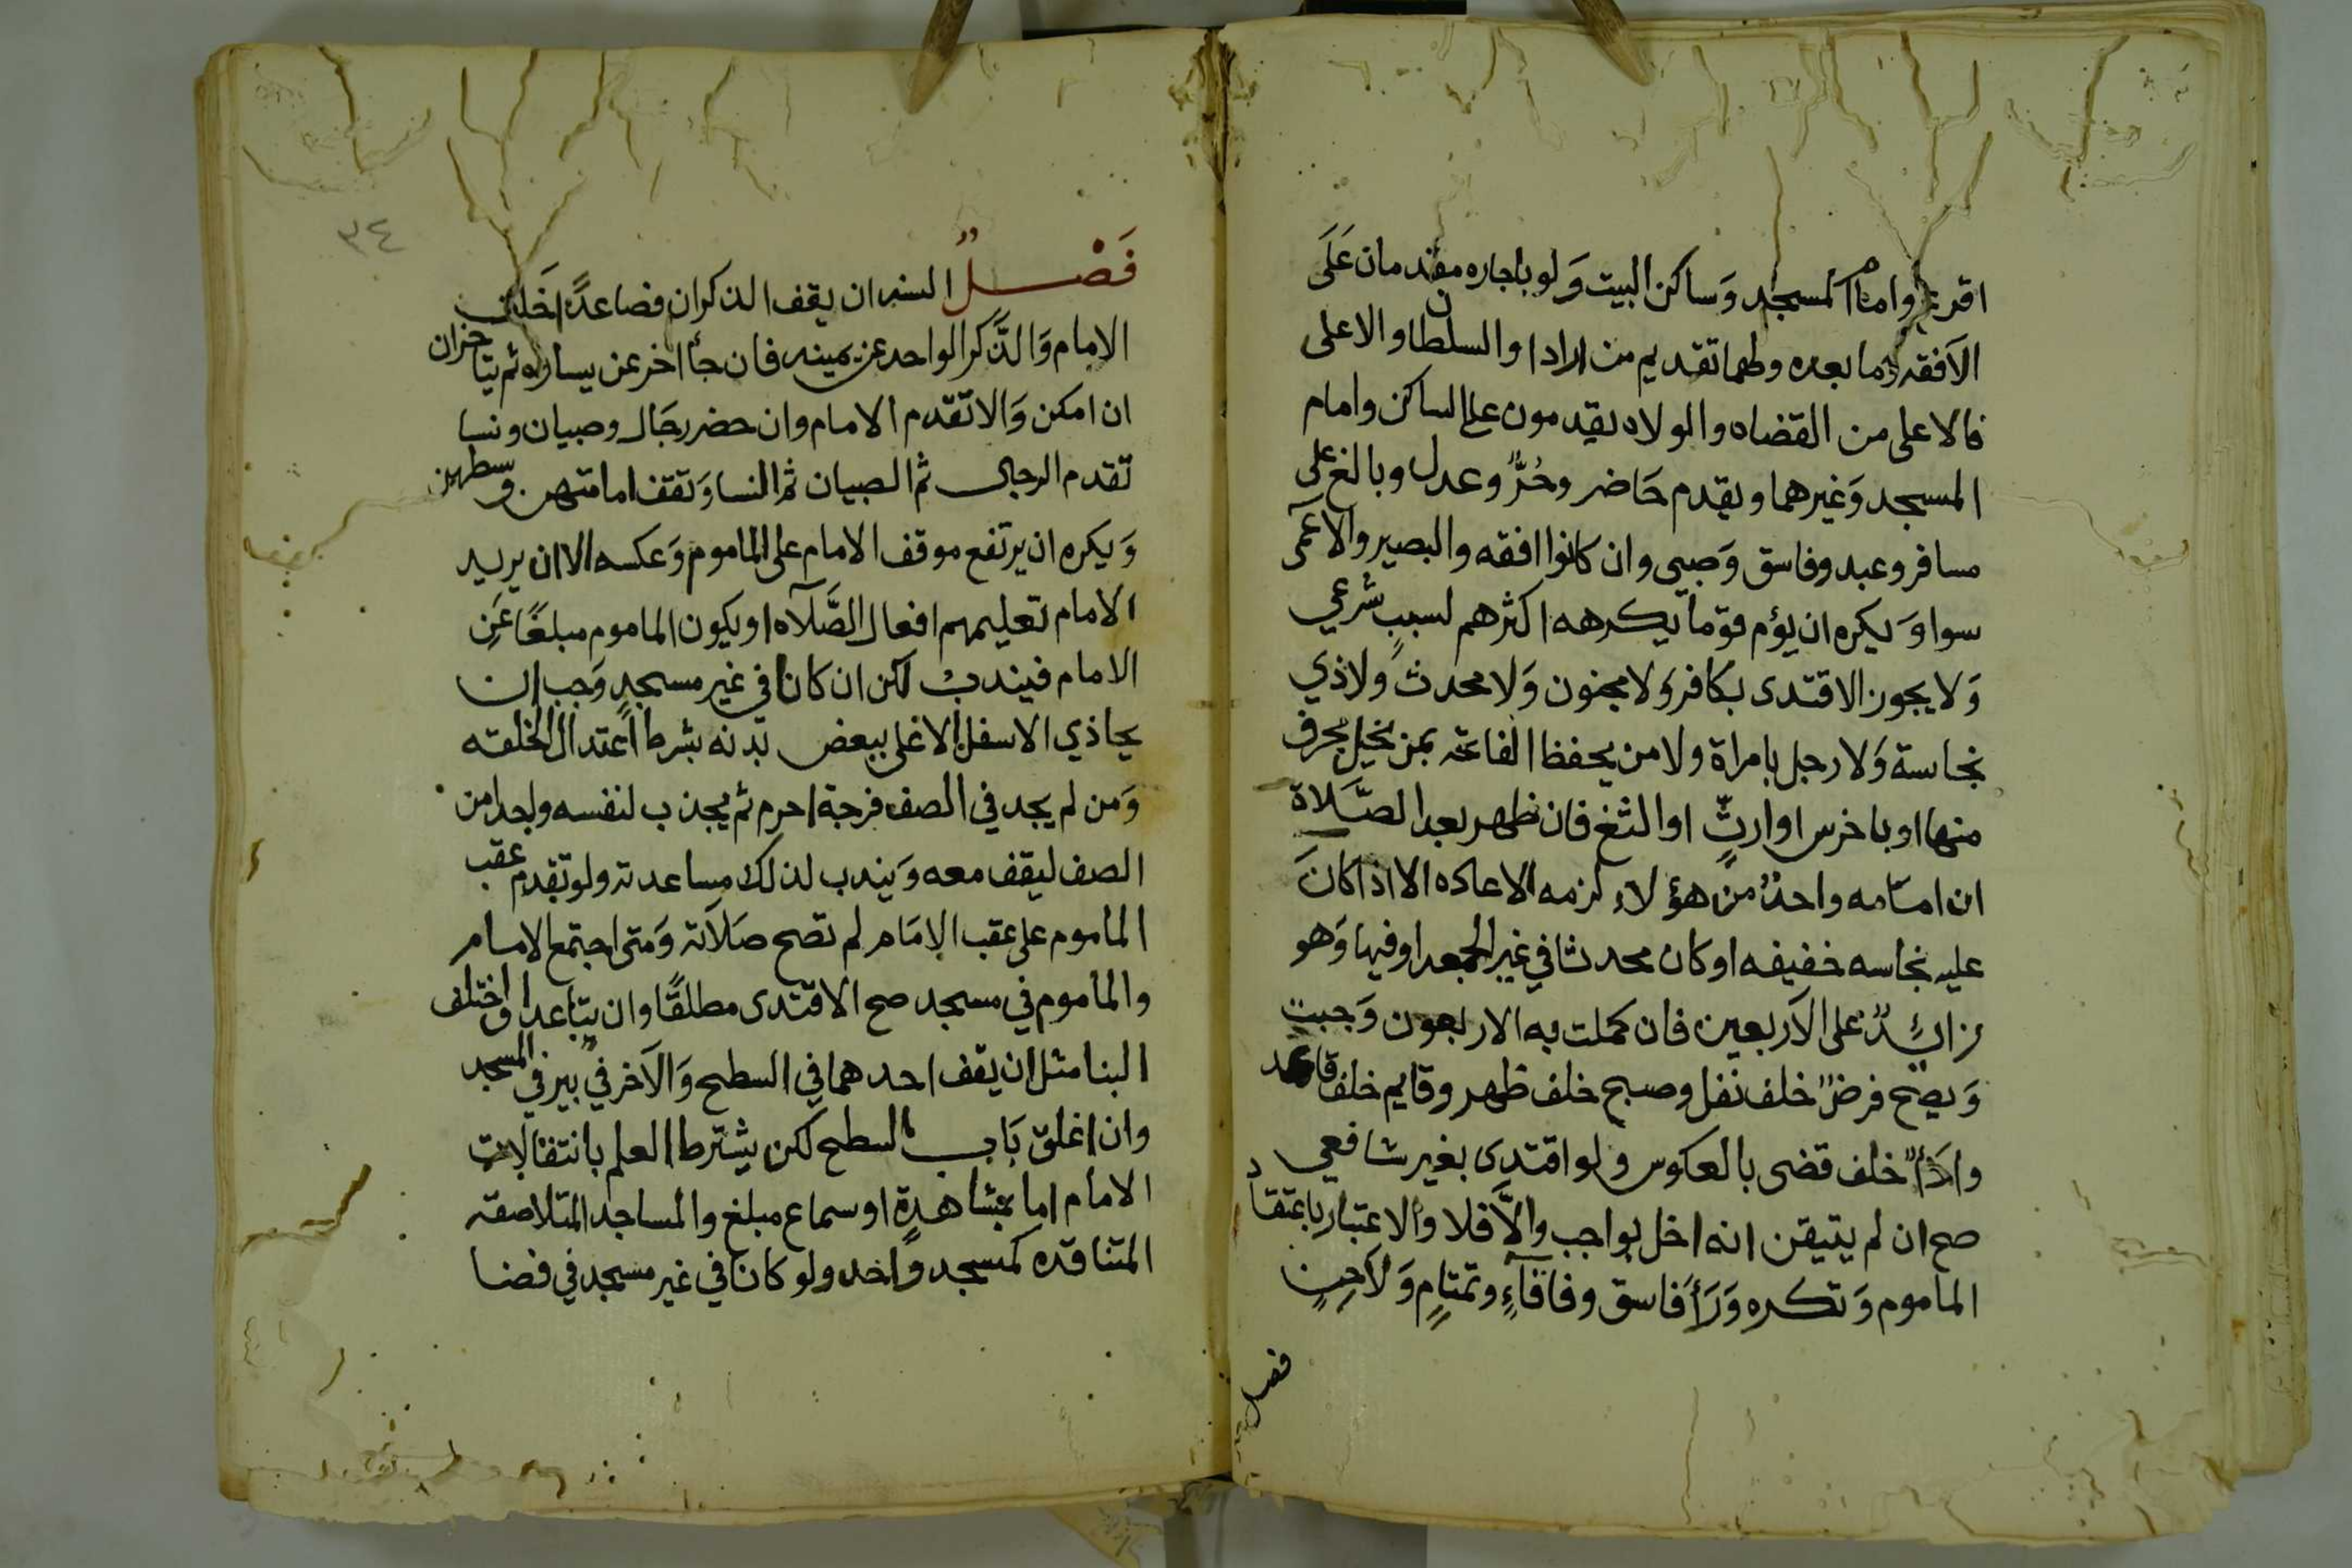 اقرع وامام المسجد وَساكن البيت وَلو باجاره مقدمان عَلَى
الاَفقه وما بعده ولهما تقديم من ارادا والسلطان والاعلى
فالاعلى من القضاه والولاه يقدمون على الساكن وامام
المسجد وَغيرهما ويقدم حَاضر وحُرٌّ وعدل وبالغ على
مسافر وعبد وفاسق وَصبي وان كانوا افقه والبصير والاعمى
سوا وَيكره ان يؤم قوَما يكرهه اكثرهم لسببٍ شرعي
وَلا يجوز الاقتدى بكافر وَلا مجنون وَلا محدث وَلا ذي
نجاسة وَلا رجل بامراة ولا من يحفظ الفاتحه بمن يخل بحرف
منها او باخرس او ارتٍّ او الثغ فان ظهر بعد الصَّلاة
ان امامه واحدٌ من هؤلاء لزمه الاعاده الا اذا كانَ
عليه نجاسه خفيفه او كان محدثا في غير الجمعه او فيها وَهو
زائدٌ على الاَربعين فان كملت به الاربعون وَجبت
وَيصح فرضٌ خلف نفل وصبح خلف ظهر وقايم خلف قاعد
واداٌ خلف قضى بالعكوس ولو اقتدى بغير شافعي
صح ان لم يتيقن انه اخل بواجب والاَّ فلا والاعتبار باعتقاد
الماموم وَتكره وَرَأَ فاسق وفافآءٍ وتمتامٍ وَلاَحِنٍ
فصل
٣٤
فَصْلٌ السنه ان يقف الذكران فصاعدًا خَلف
الامام وَالذَّكر الواحد عن يمينه فان جأ اخر عن يساره ثم يتاخران
ان امكن وَالا تقدم الامام وان حضر رجَال وصبيان ونسا
تقدم الرجال ثم الصبيان ثم النسا وَتقف امامتهن وسطهن
وَيكره ان يرتفع موقف الامام على الماموم وَعكسه الا ان يريد
الامام تعليمهم افعال الصَّلآه او يكون الماموم مبلغًا عَنِ
الامام فيندبُ لكن ان كانا في غير مسجدٍ وَجب ان
يحاذي الاسفل الاعلى ببعض بَدنه بشرط اعتدال الخلقه
وَمن لم يجد في الصف فرجة احرم ثم يجذب لنفسه واحدا من
الصف ليقف معه وَيندب لذلك مساعدته ولو تقدم عقب
الماموم على عقب الامَام لم تصح صَلاَته وَمتى اجتمع الامام
والماموم في مسجد صح الاقتدى مطلقًا وان تباعدا او اختلف
البنا مثل ان يقف احدهما في السطح وَالاَخر في بير في المسجد
وان اغلق بَاب السطح لكن يشترط العلم بانتقالات
الامام اما بمشاهدةٍ او سماع مبلغ والمساجد المتلاصقه
المتنافده كمسجد وَاحد ولو كانا في غير مسجد في فضا